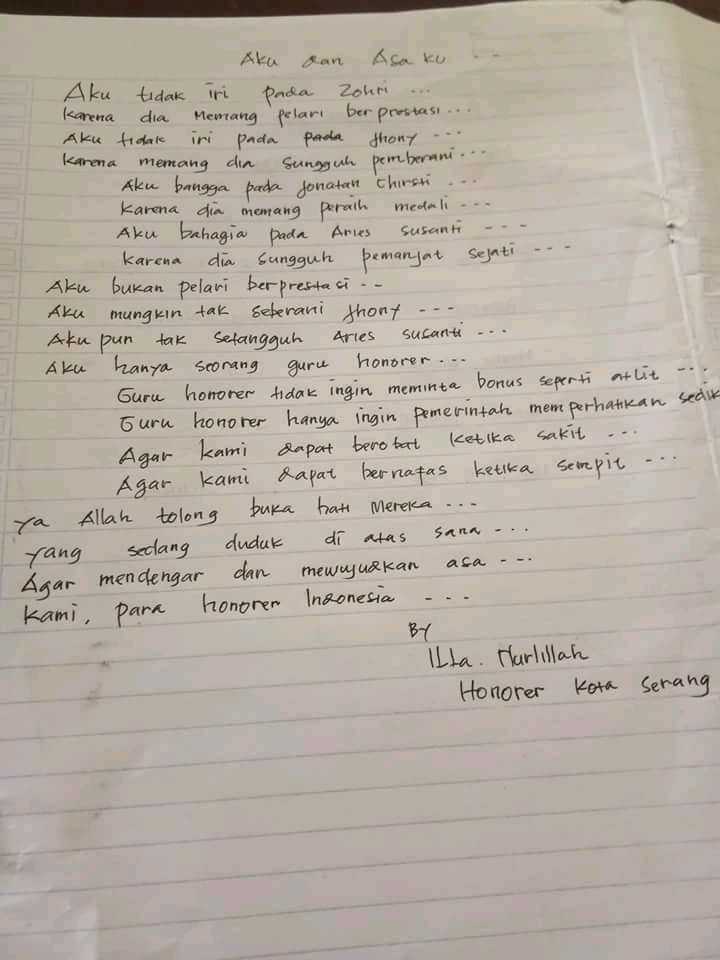 Aku dan Asa ku - -
Aku tidak iri pada Zohri ...
Karena dia Memang pelari berprestasi ...
Aku tidak iri pada pada Jhony ---
Karena memang dia sungguh pemberani ...
Aku bangga pada Jonatan Chirsti ...
Karena dia memang peraih medali ---
Aku bahagia pada Aries Susanti ---
Karena dia sungguh pemanjat sejati ---
Aku bukan pelari berprestasi --
Aku mungkin tak seberani Jhony ---
Aku pun tak setangguh Aries susanti ...
Aku hanya seorang guru honorer ...
Guru honorer tidak ingin meminta bonus seperti atlit ---
Guru honorer hanya ingin pemerintah memperhatikan sedik
Agar kami dapat berobat ketika sakit ...
Agar kami dapat bernafas ketika sempit ---
Ya Allah tolong buka hati Mereka ...
Yang sedang duduk di atas sana ...
Agar mendengar dan mewujudkan asa ---
Kami, para honorer Indonesia ---
BY
Nurlillah
Honorer Kota Serang